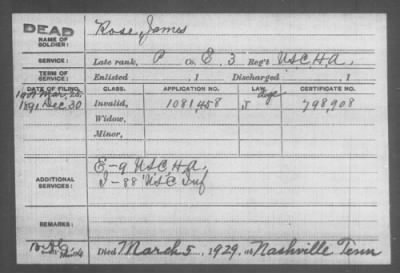 DEAD
NAME OF SOLDIER: Rose, James
SERVICE: Late rank, P Co. E, 3 Reg't U S C H A.
TERM OF SERVICE: Enlisted , 1 Discharged , 1
DATE OF FILING. CLASS. APPLICATION NO. LAW. CERTIFICATE NO.
Age
1891 Dec. 30 Invalid, 1081,458 J 798,908
Widow,
Minor,
ADDITIONAL SERVICES: E-9 U S C H A.
I-88 U S C Inf
REMARKS:
Died March 5, 1929, at Nashville Tenn